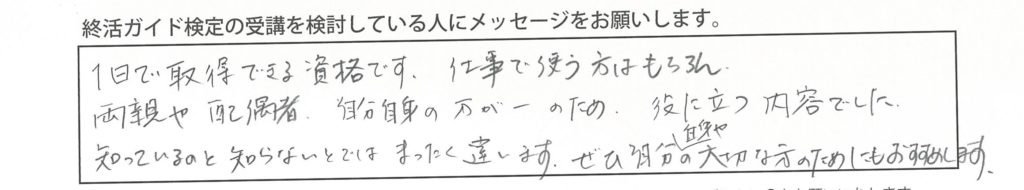 終活ガイド検定の受講を検討している人にメッセージをお願いします。
1日で取得できる資格です。仕事で使う方はもちろん、
両親や配偶者、自分自身の万が一のため、役に立つ内容でした。
知っているのと知らないとではまったく違います。ぜひ自分自身や大切な方のためにもおすすめします。